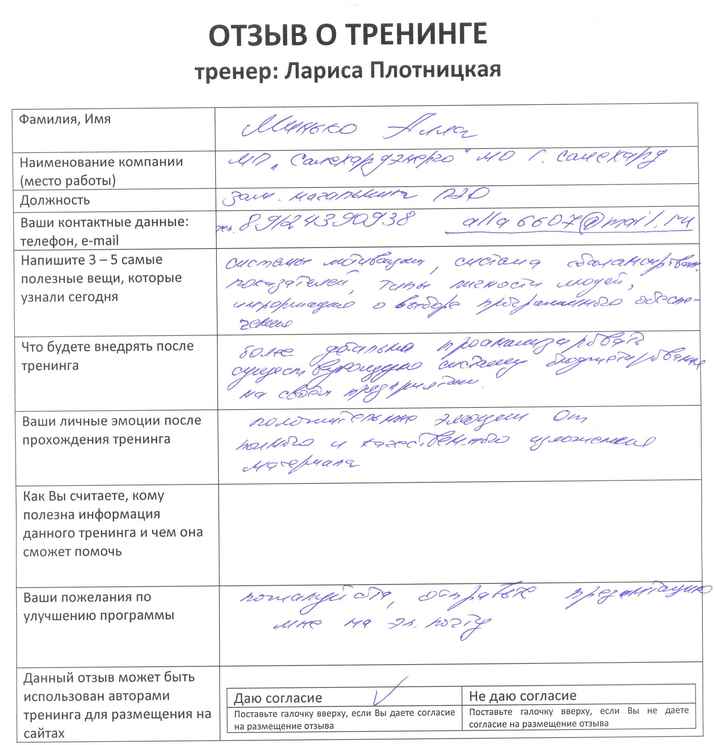 ОТЗЫВ О ТРЕНИНГЕ
тренер: Лариса Плотницкая
Фамилия, Имя
Минько Алла
Наименование компании
(место работы)
МП „Салехардэнерго" МО г. Салехард
Должность
зам. начальника ПЭО
Ваши контактные данные:
телефон, e-mail
89124390938 alla6607@mail.ru
Напишите 3 – 5 самые
полезные вещи, которые
узнали сегодня
системы мотивации, система сбалансирован.
показателей, типы личности людей,
информацию о выборе программного обеспе-
чения
Что будете внедрять после
тренинга
более детально проанализировать
существующую систему бюджетирования
на своем предприятии.
Ваши личные эмоции после
прохождения тренинга
положительные эмоции от
полного и качественного изложения
материала
Как Вы считаете, кому
полезна информация
данного тренинга и чем она
сможет помочь
Ваши пожелания по
улучшению программы
пожалуйста, отправьте презентацию
мне на эл. почту
Данный отзыв может быть
использован авторами
тренинга для размещения на
сайтах
Даю согласие
Поставьте галочку вверху, если Вы даете согласие
на размещение отзыва
Не даю согласие
Поставьте галочку вверху, если Вы не даете
согласие на размещение отзыва